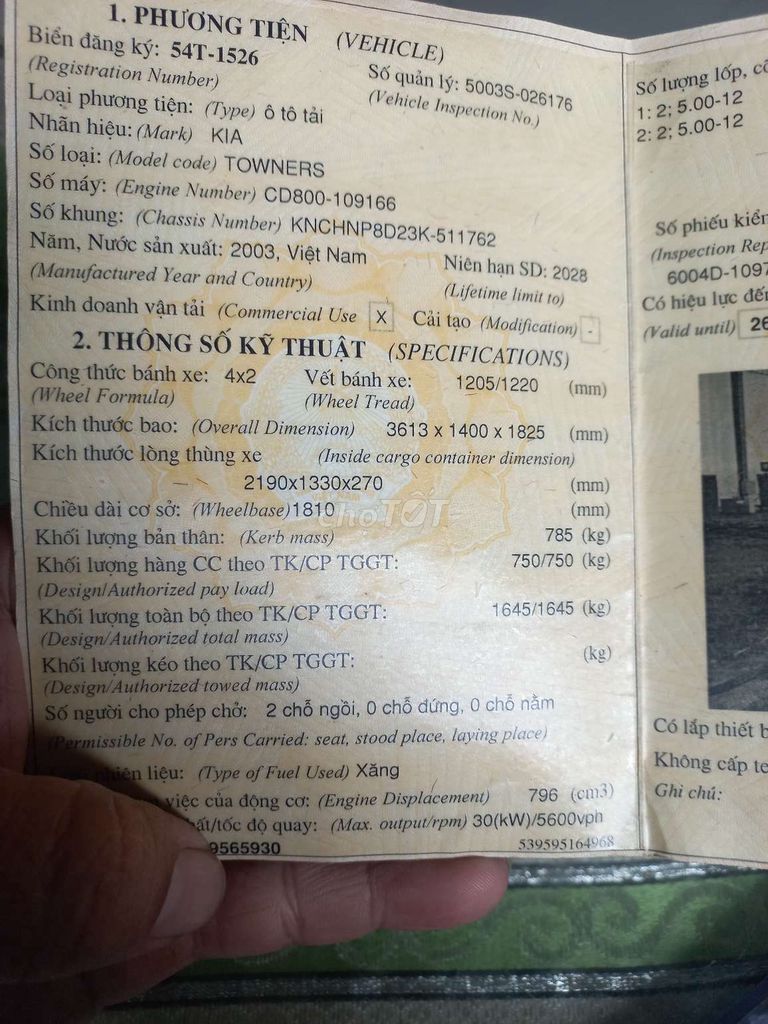 1. PHƯƠNG TIỆN (VEHICLE)
Biển đăng ký: 54T-1526
(Registration Number)
Số quản lý: 5003S-026176
(Vehicle Inspection No.)
Loại phương tiện: (Type) ô tô tải
Nhãn hiệu: (Mark) KIA
Số loại: (Model code) TOWNERS
Số máy: (Engine Number) CD800-109166
Số khung: (Chassis Number) KNCHNP8D23K-511762
Năm, Nước sản xuất: 2003, Việt Nam
(Manufactured Year and Country)
Niên hạn SD: 2028
(Lifetime limit to)
Kinh doanh vận tải (Commercial Use X Cải tạo (Modification) -
2. THÔNG SỐ KỸ THUẬT (SPECIFICATIONS)
Công thức bánh xe: 4x2
(Wheel Formula)
Vết bánh xe: 1205/1220 (mm)
(Wheel Tread)
Kích thước bao: (Overall Dimension) 3613 x 1400 x 1825 (mm)
Kích thước lòng thùng xe (Inside cargo container dimension)
2190x1330x270 (mm)
Chiều dài cơ sở: (Wheelbase) 1810 (mm)
Khối lượng bản thân: (Kerb mass) 785 (kg)
Khối lượng hàng CC theo TK/CP TGGT: 750/750 (kg)
(Design/Authorized pay load)
Khối lượng toàn bộ theo TK/CP TGGT: 1645/1645 (kg)
(Design/Authorized total mass)
Khối lượng kéo theo TK/CP TGGT: (kg)
(Design/Authorized towed mass)
Số người cho phép chở: 2 chỗ ngồi, 0 chỗ đứng, 0 chỗ nằm
(Permissible No. of Pers Carried: seat, stood place, laying place)
nhiên liệu: (Type of Fuel Used) Xăng
việc của động cơ: (Engine Displacement) 796 (cm3)
/tốc độ quay: (Max. output/rpm) 30(kW)/5600vph
9565930
539595164968
Số lượng lốp,
1: 2; 5.00-12
2: 2; 5.00-12
Số phiếu
(Inspection
6004D-1097
Có hiệu lực
(Valid until) 26
Có lắp thiết
Không cấp
Ghi chú:
choTỐT